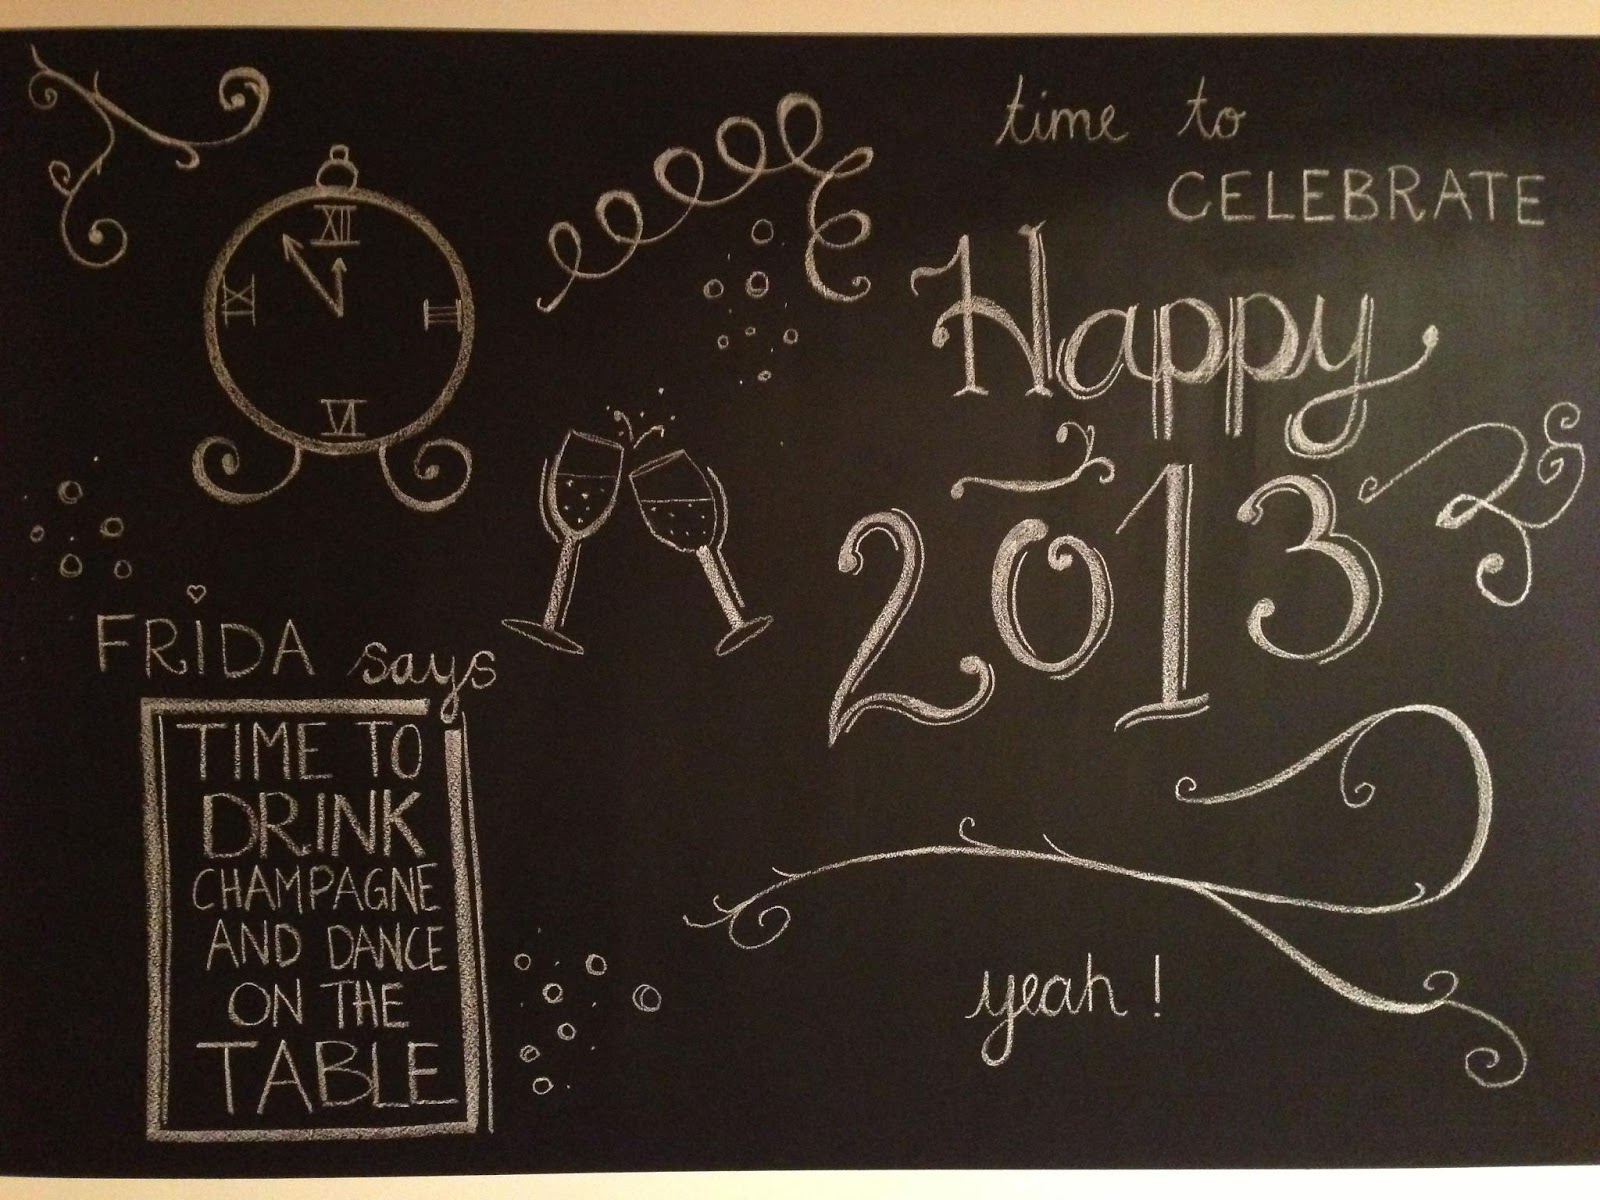 time to
CELEBRATE
Happy
2013
XII
III
VI
IX
FRiDA says
TIME TO
DRINK
CHAMPAGNE
AND DANCE
ON THE
TABLE
yeah!